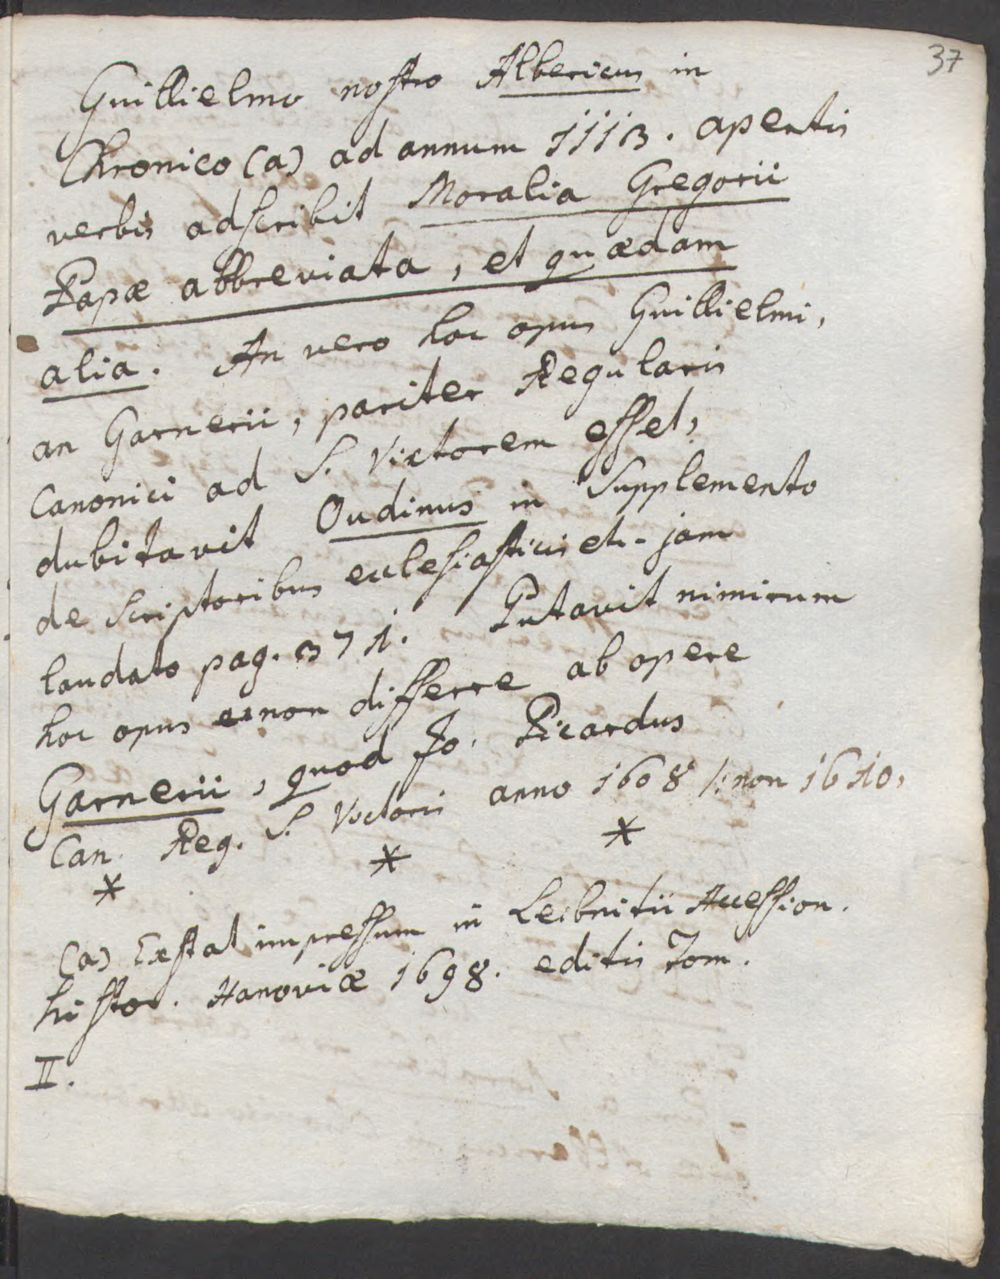 37
Guillielmo nostro Albericus in
Chronico (a) ad annum 1113. apertis
verbis adscribit Moralia Gregorii
Papæ abbreviata, et quædam
alia. An vero hoc opus Guillielmi,
an Garnerii, pariter Regularis
Canonici ad S. Victorem esset,
dubitavit Oudinus in Supplemento
de scriptoribus ecclesiasticis etc. jam
laudato pag. 371. Putavit nimirum
hoc opus non differre ab opere
Garnerii, quod Jo. Picardus
Can. Reg. S. Victoris anno 1608 /: non 1610,
* * *
(a) Exstat impressum in Leibnitii Accession.
histor. Hanoviæ 1698. editis Tom.
II.